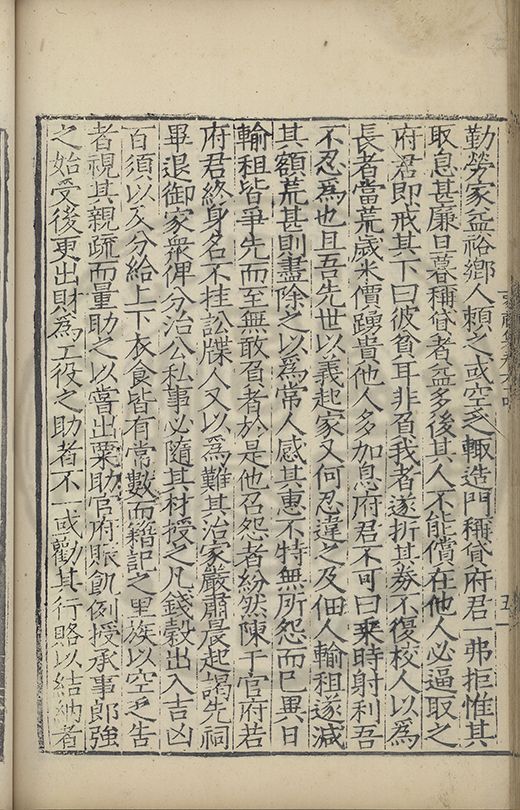 勤勞家益裕鄉人賴之或空乏輙造門稱貸府君一弗拒惟其
取息甚廉日暮稱貸者益多後其人不能償在他人必逼取之
府君即戒其下曰彼貧耳非負我者遂折其券不復校人以爲
長者當荒歲米價踴貴他人多加息府君不可曰乘時射利吾
不忍爲也且吾先世以義起家又何忍違之及佃人輸租遂減
其額荒甚則盡除之以爲常人感其惠不特無所怨而已異日
輸租皆爭先而至無敢負者於是他召怨者紛然陳于官府若
府君終身名不挂訟牒人又以爲難其治家嚴肅晨起謁先祠
畢退御家衆俾分治公私事必隨其材授之凡錢穀出入吉凶
百須以及分給上下衣食皆有常數而籍記之里族以空乏告
者視其親疏而量助之以嘗出粟助官府賑飢例授承事郎強
之始受後更出財爲工役之助者不一或勸其行賂以結納者